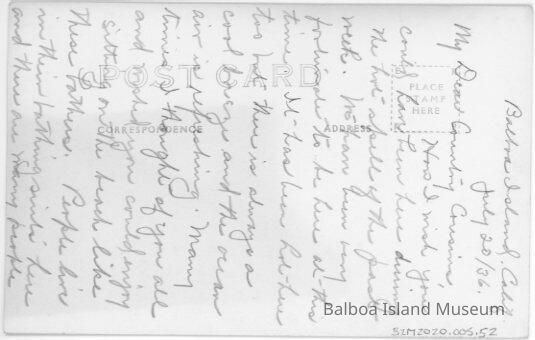 Balboa Island, Calif.
July 20/36.
My Dear Country Cousin,
How I wish you
could have been here during
the hot spell of the past
week. We have been very
fortunate to be here at this
time. It has been hot here
too but there is always a
cool breeze and the ocean
air is refreshing. Many
times I thought of you all
and wished you could enjoy
sitting on the beach like
these bathers. People live
in their bathing suits here
and there are many people
POST CARD
CORRESPONDENCE
ADDRESS
PLACE
STAMP
HERE
Balboa Island Museum
BIM2020.005.52